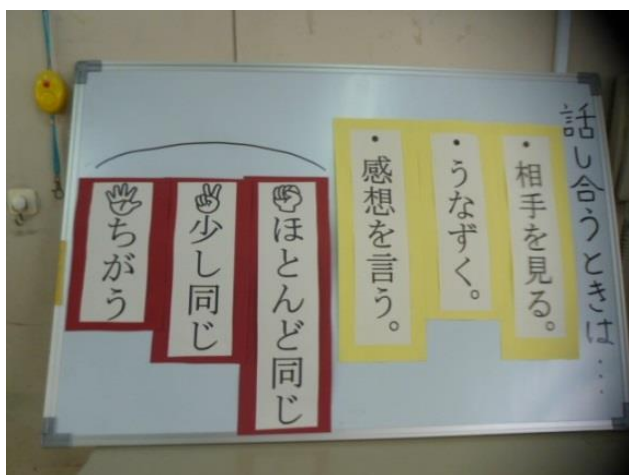 話し合うときは…
・相手を見る。
・うなずく。
・感想を言う。
ほとんど同じ
少し同じ
ちがう